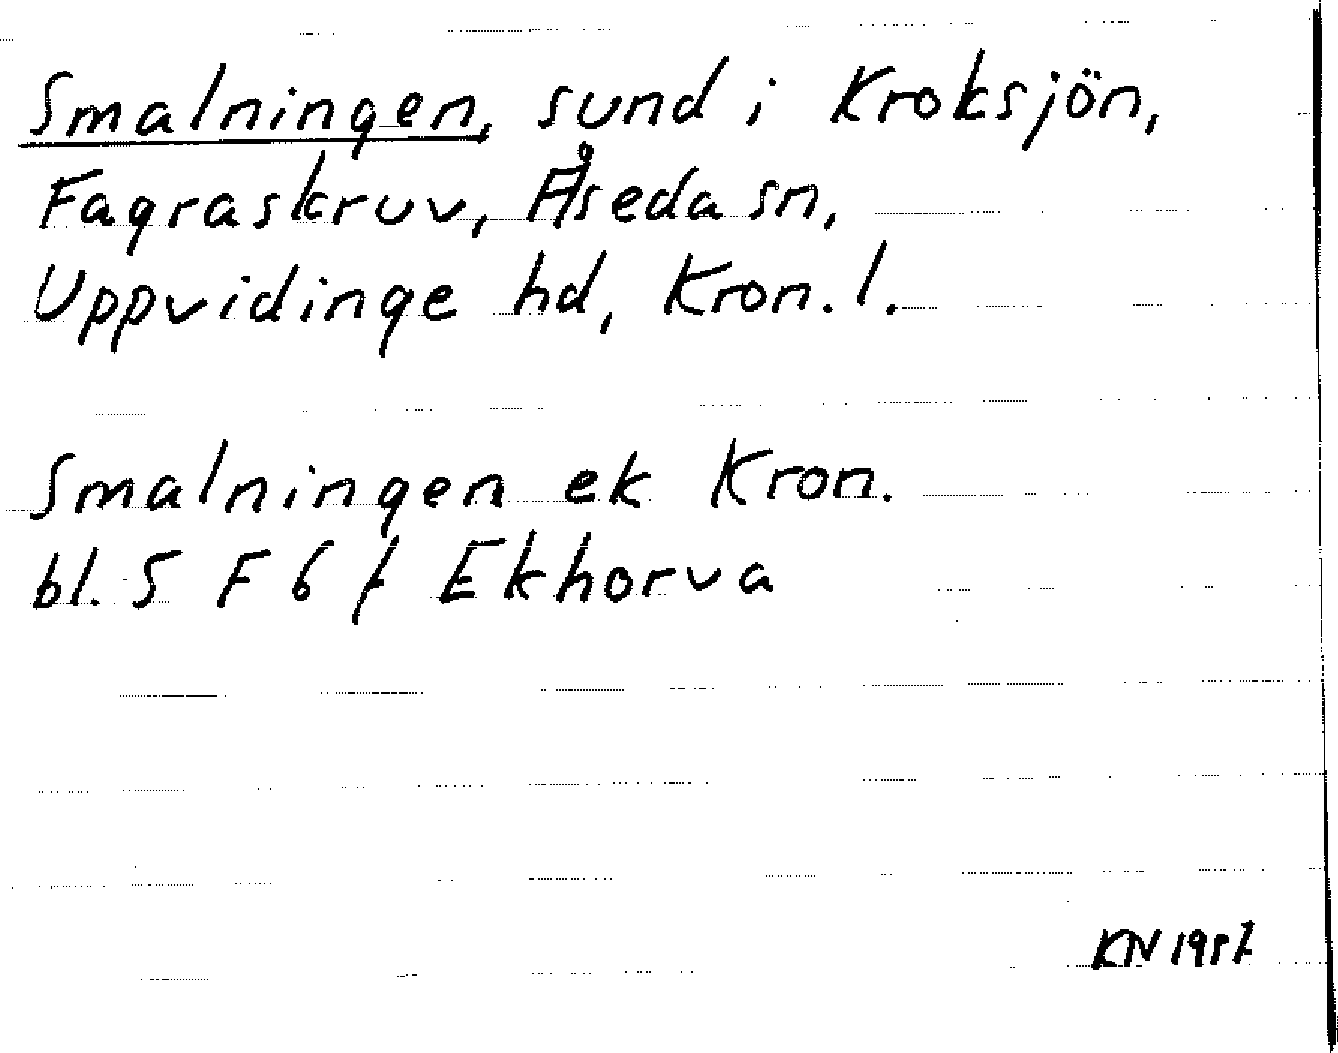 Smalningen, sund i Kroksjön,
Fagraskruv, Åseda sn,
Uppvidinge hd, Kron. l.
Smalningen ek Kron.
bl. 5 F 6 f Ekhorva
KN